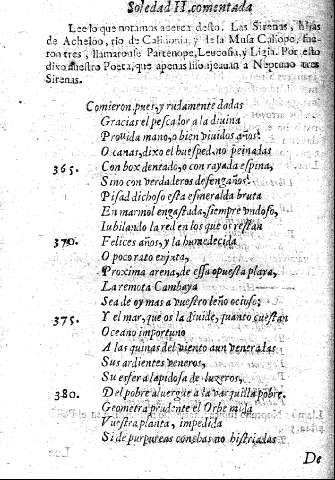 Soledad II, comentada
Lee lo que notamos acerca desto. Las Sirenas, hijas
de Acheloo, rio de Calidonia, y de la Musa Caliope, fue
ron tres, llamaronse Partenope, Leucosia, y Ligia. Por esto
dixo nuestro Poeta, que apenas lisonjeauan a Neptuno tres
Sirenas.
Comieron pues, y rudamente dadas
Gracias el pescador a la diuina
Prouida mano, o bien viuidos años!
O canas, dixo el huesped, no peinadas
365. Con box dentado, o con rayada espina,
Sino con verdaderos desengaños!
Pisad dichoso esta esmeralda bruta
En marmol engastada, siempre vndoso,
Iubilando la red en los que os restan
370. Felices años, y la humedecida
O poco rato enjuta,
Proxima arena, de essa opuesta playa,
La remota Cambaya
Sea de oy mas a vuestro leño ocioso;
375. Y el mar, que os la diuide, quanto cuestan
Oceano importuno
A las quinas del viento aun veneradas
Sus ardientes veneros,
Su esfera lapidosa de luzeros,
380. Del pobre aluergue a la varquilla pobre.
Geometra prudente el Orbe mida
Vuestra planta, impedida
Si de purpureas conchas no histriadas
De